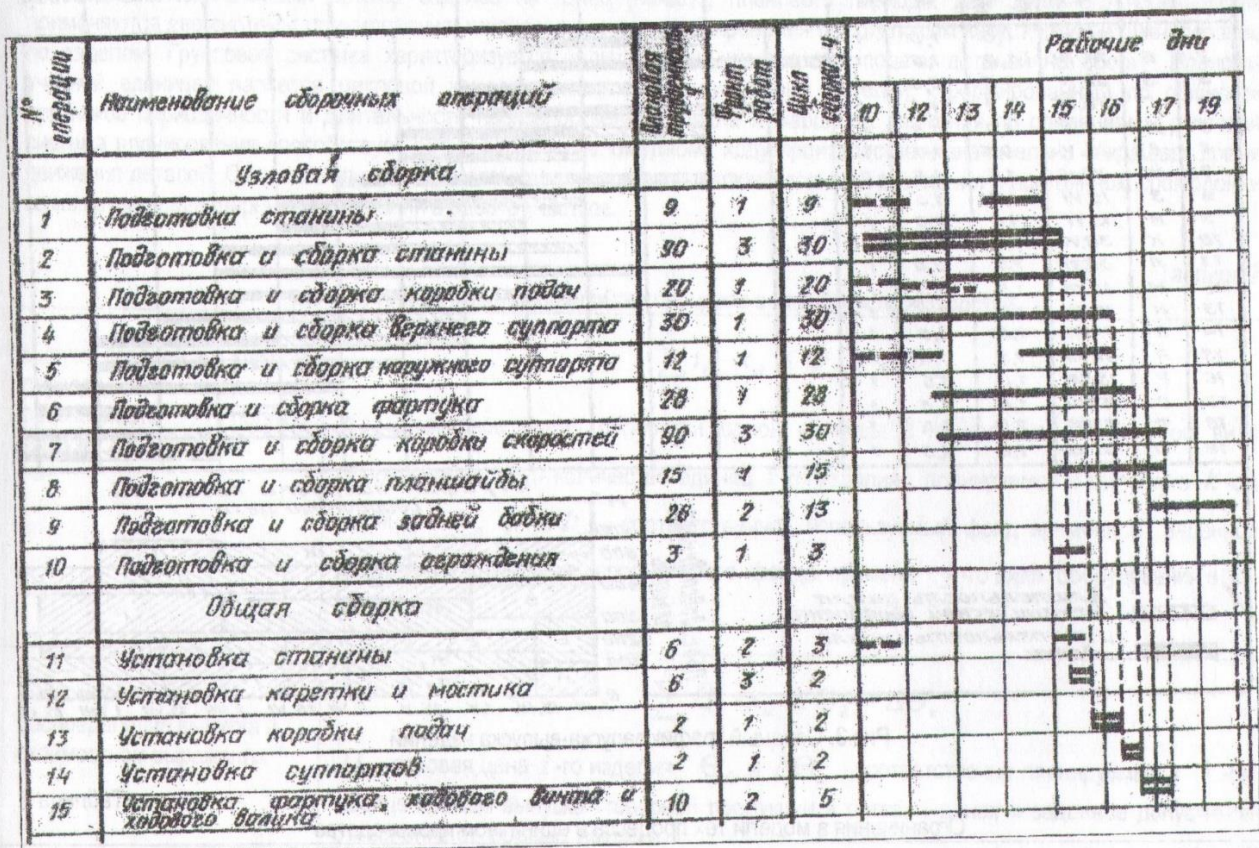 Рабочие дни
№ операции Наименование сборочных операций Плановая трудоемкость Фронт работ Цикл сборки, ч 10 12 13 14 15 16 17 19
Узловая сборка
1 Подготовка станины 9 1 9
2 Подготовка и сборка станины 90 3 30
3 Подготовка и сборка коробки подач 20 1 20
4 Подготовка и сборка верхнего суппорта 30 1 30
5 Подготовка и сборка наружного суппорта 12 1 12
6 Подготовка и сборка фартука 28 1 28
7 Подготовка и сборка коробки скоростей 90 3 30
8 Подготовка и сборка планшайбы 15 1 15
9 Подготовка и сборка задней бабки 26 2 13
10 Подготовка и сборка ограждения 3 1 3
Общая сборка
11 Установка станины 6 2 3
12 Установка каретки и мостика 6 3 2
13 Установка коробки подач 2 1 2
14 Установка суппортов 2 1 2
15 Установка фартука, ходового винта и
ходового валика 10 2 5